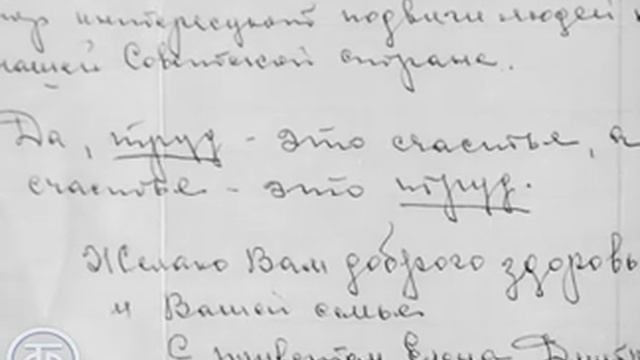 интересуют подвиги людей
нашей Советской стране.
Да, труд - это счастье, а
счастье - это труд.
Желаю Вам доброго здоровь
и Вашей семье
С приветом Елена